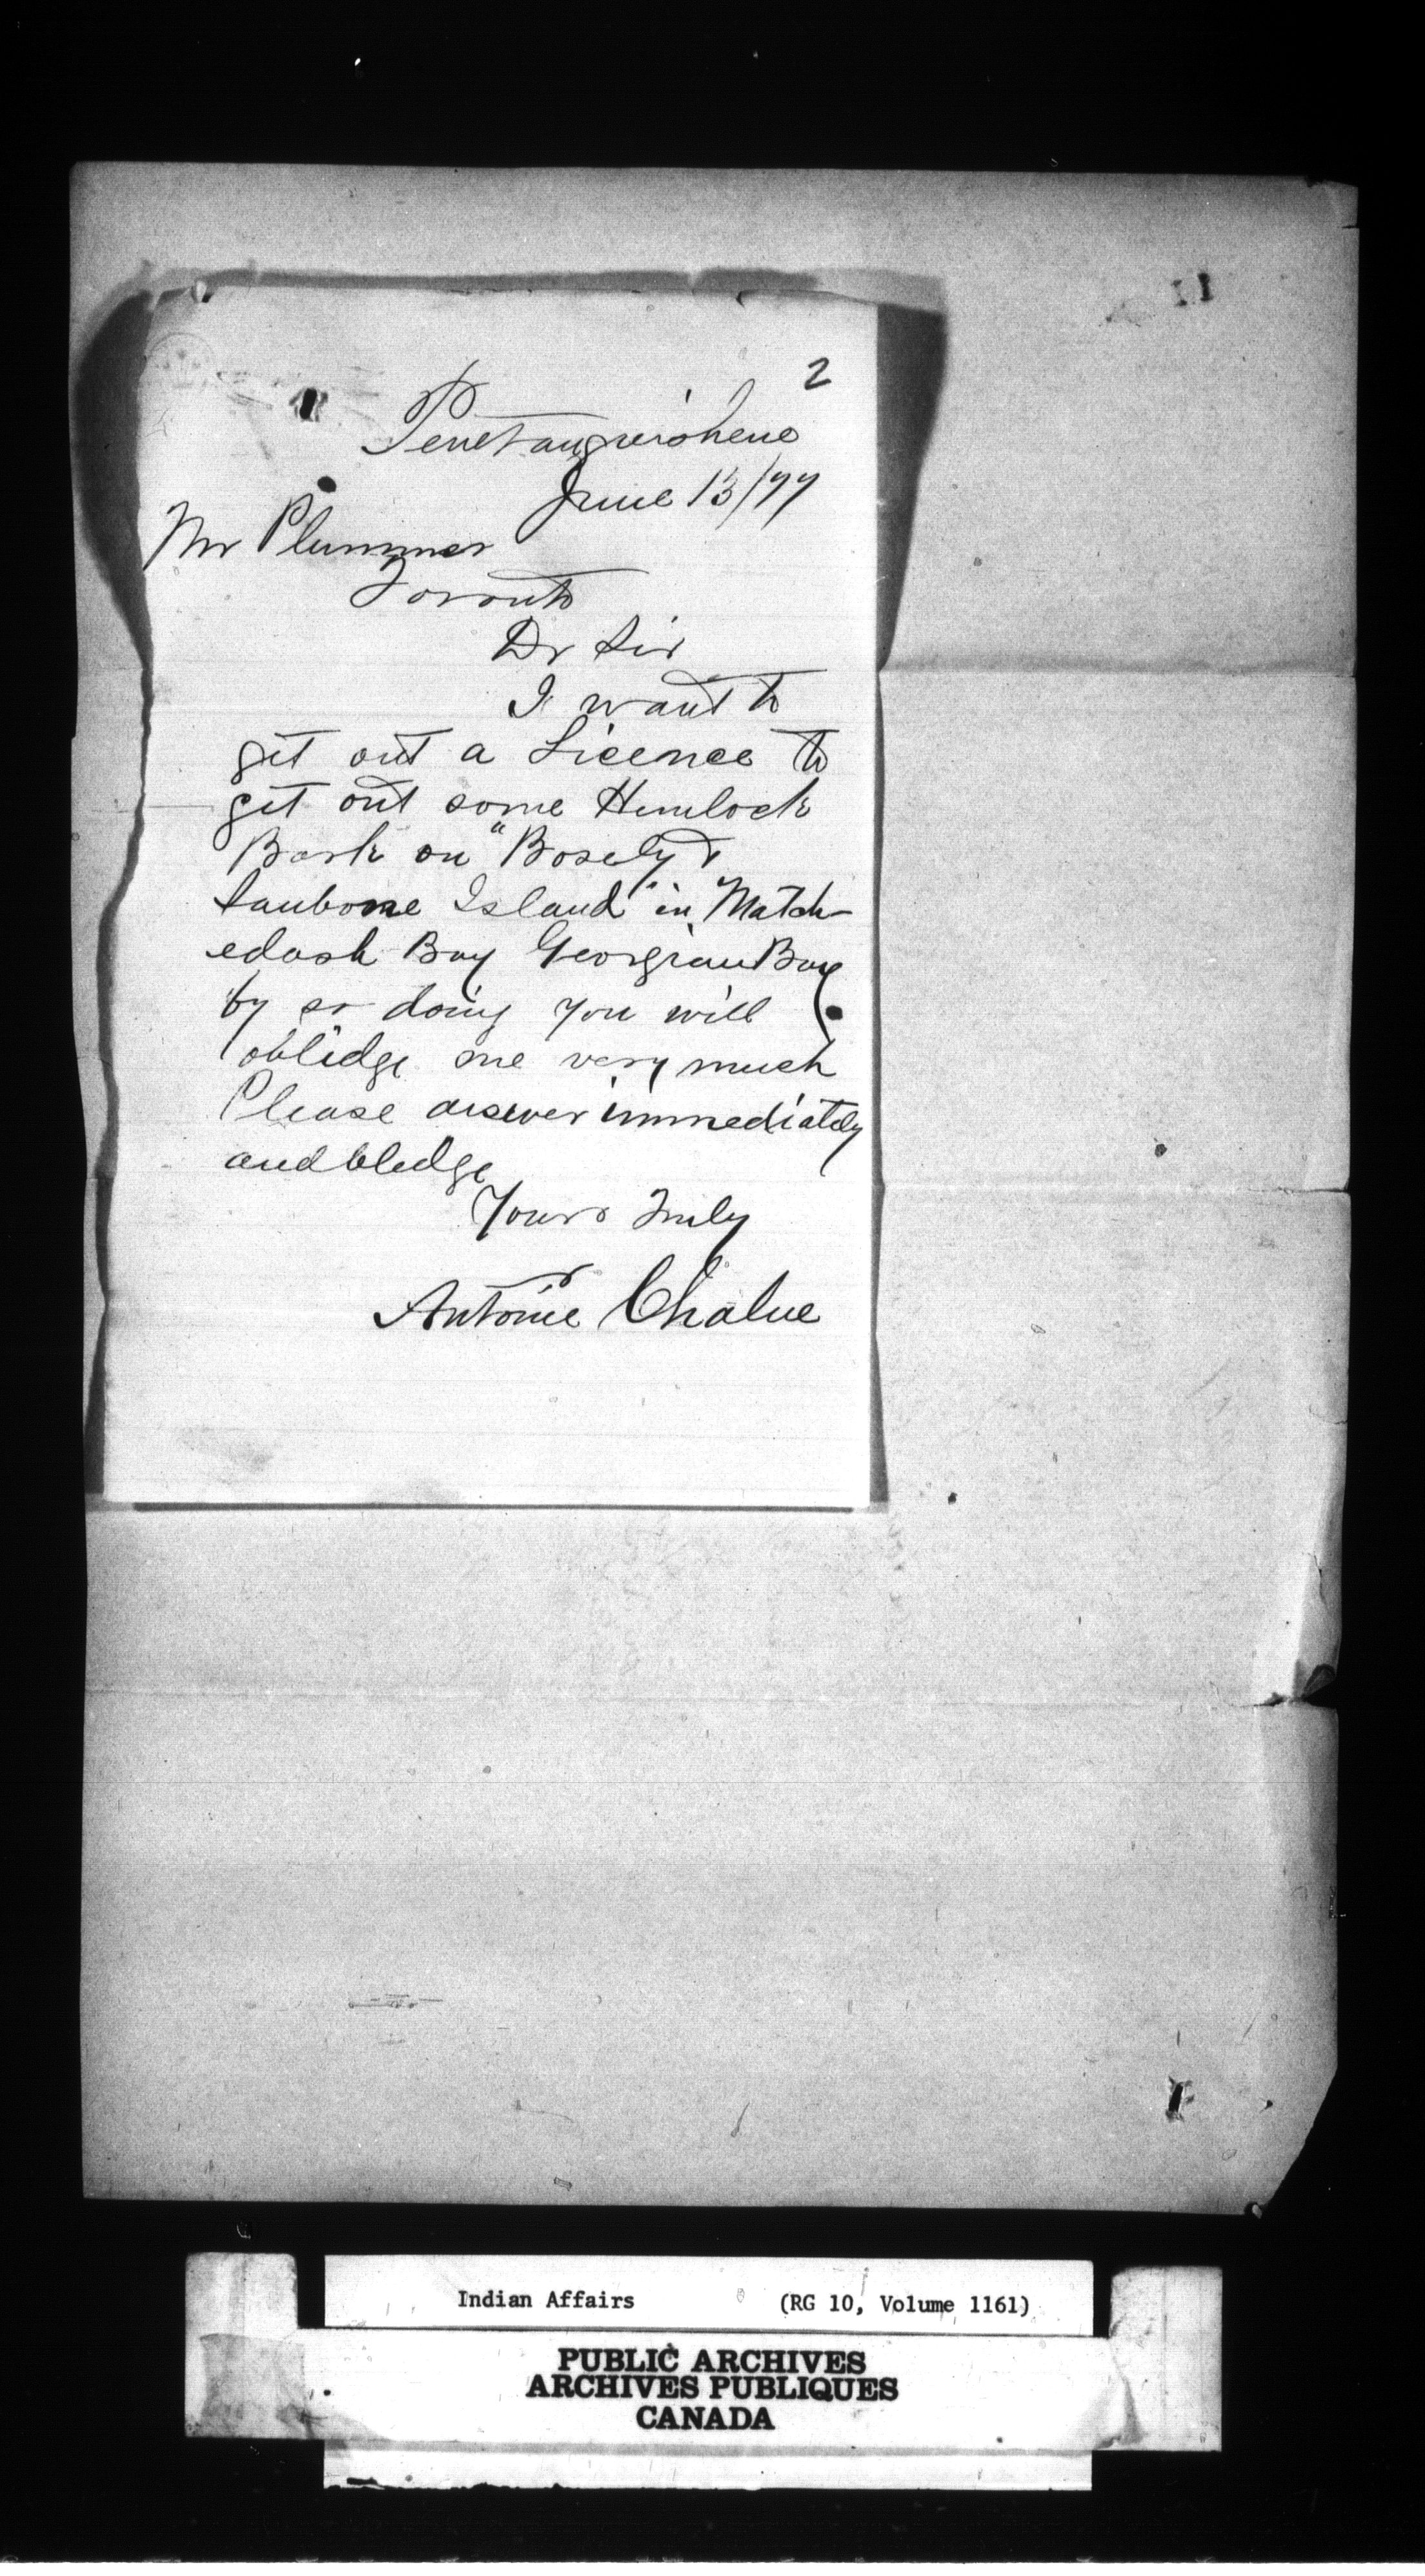 2
Penetanguishene
June 13/77
Mr Plummer
Toronto
Dr Sir
I want to
get out a Licence to
get out some Hemlock
Bark on "Bosely &
Island" in Match-
edash Bay Georgian Bay
by so doing you will
oblidge me very much
Please answer immediately
and blidge
Yours Truly
Antoine
Indian Affairs (RG 10, Volume 1161)
PUBLIC ARCHIVES
ARCHIVES PUBLIQUES
CANADA